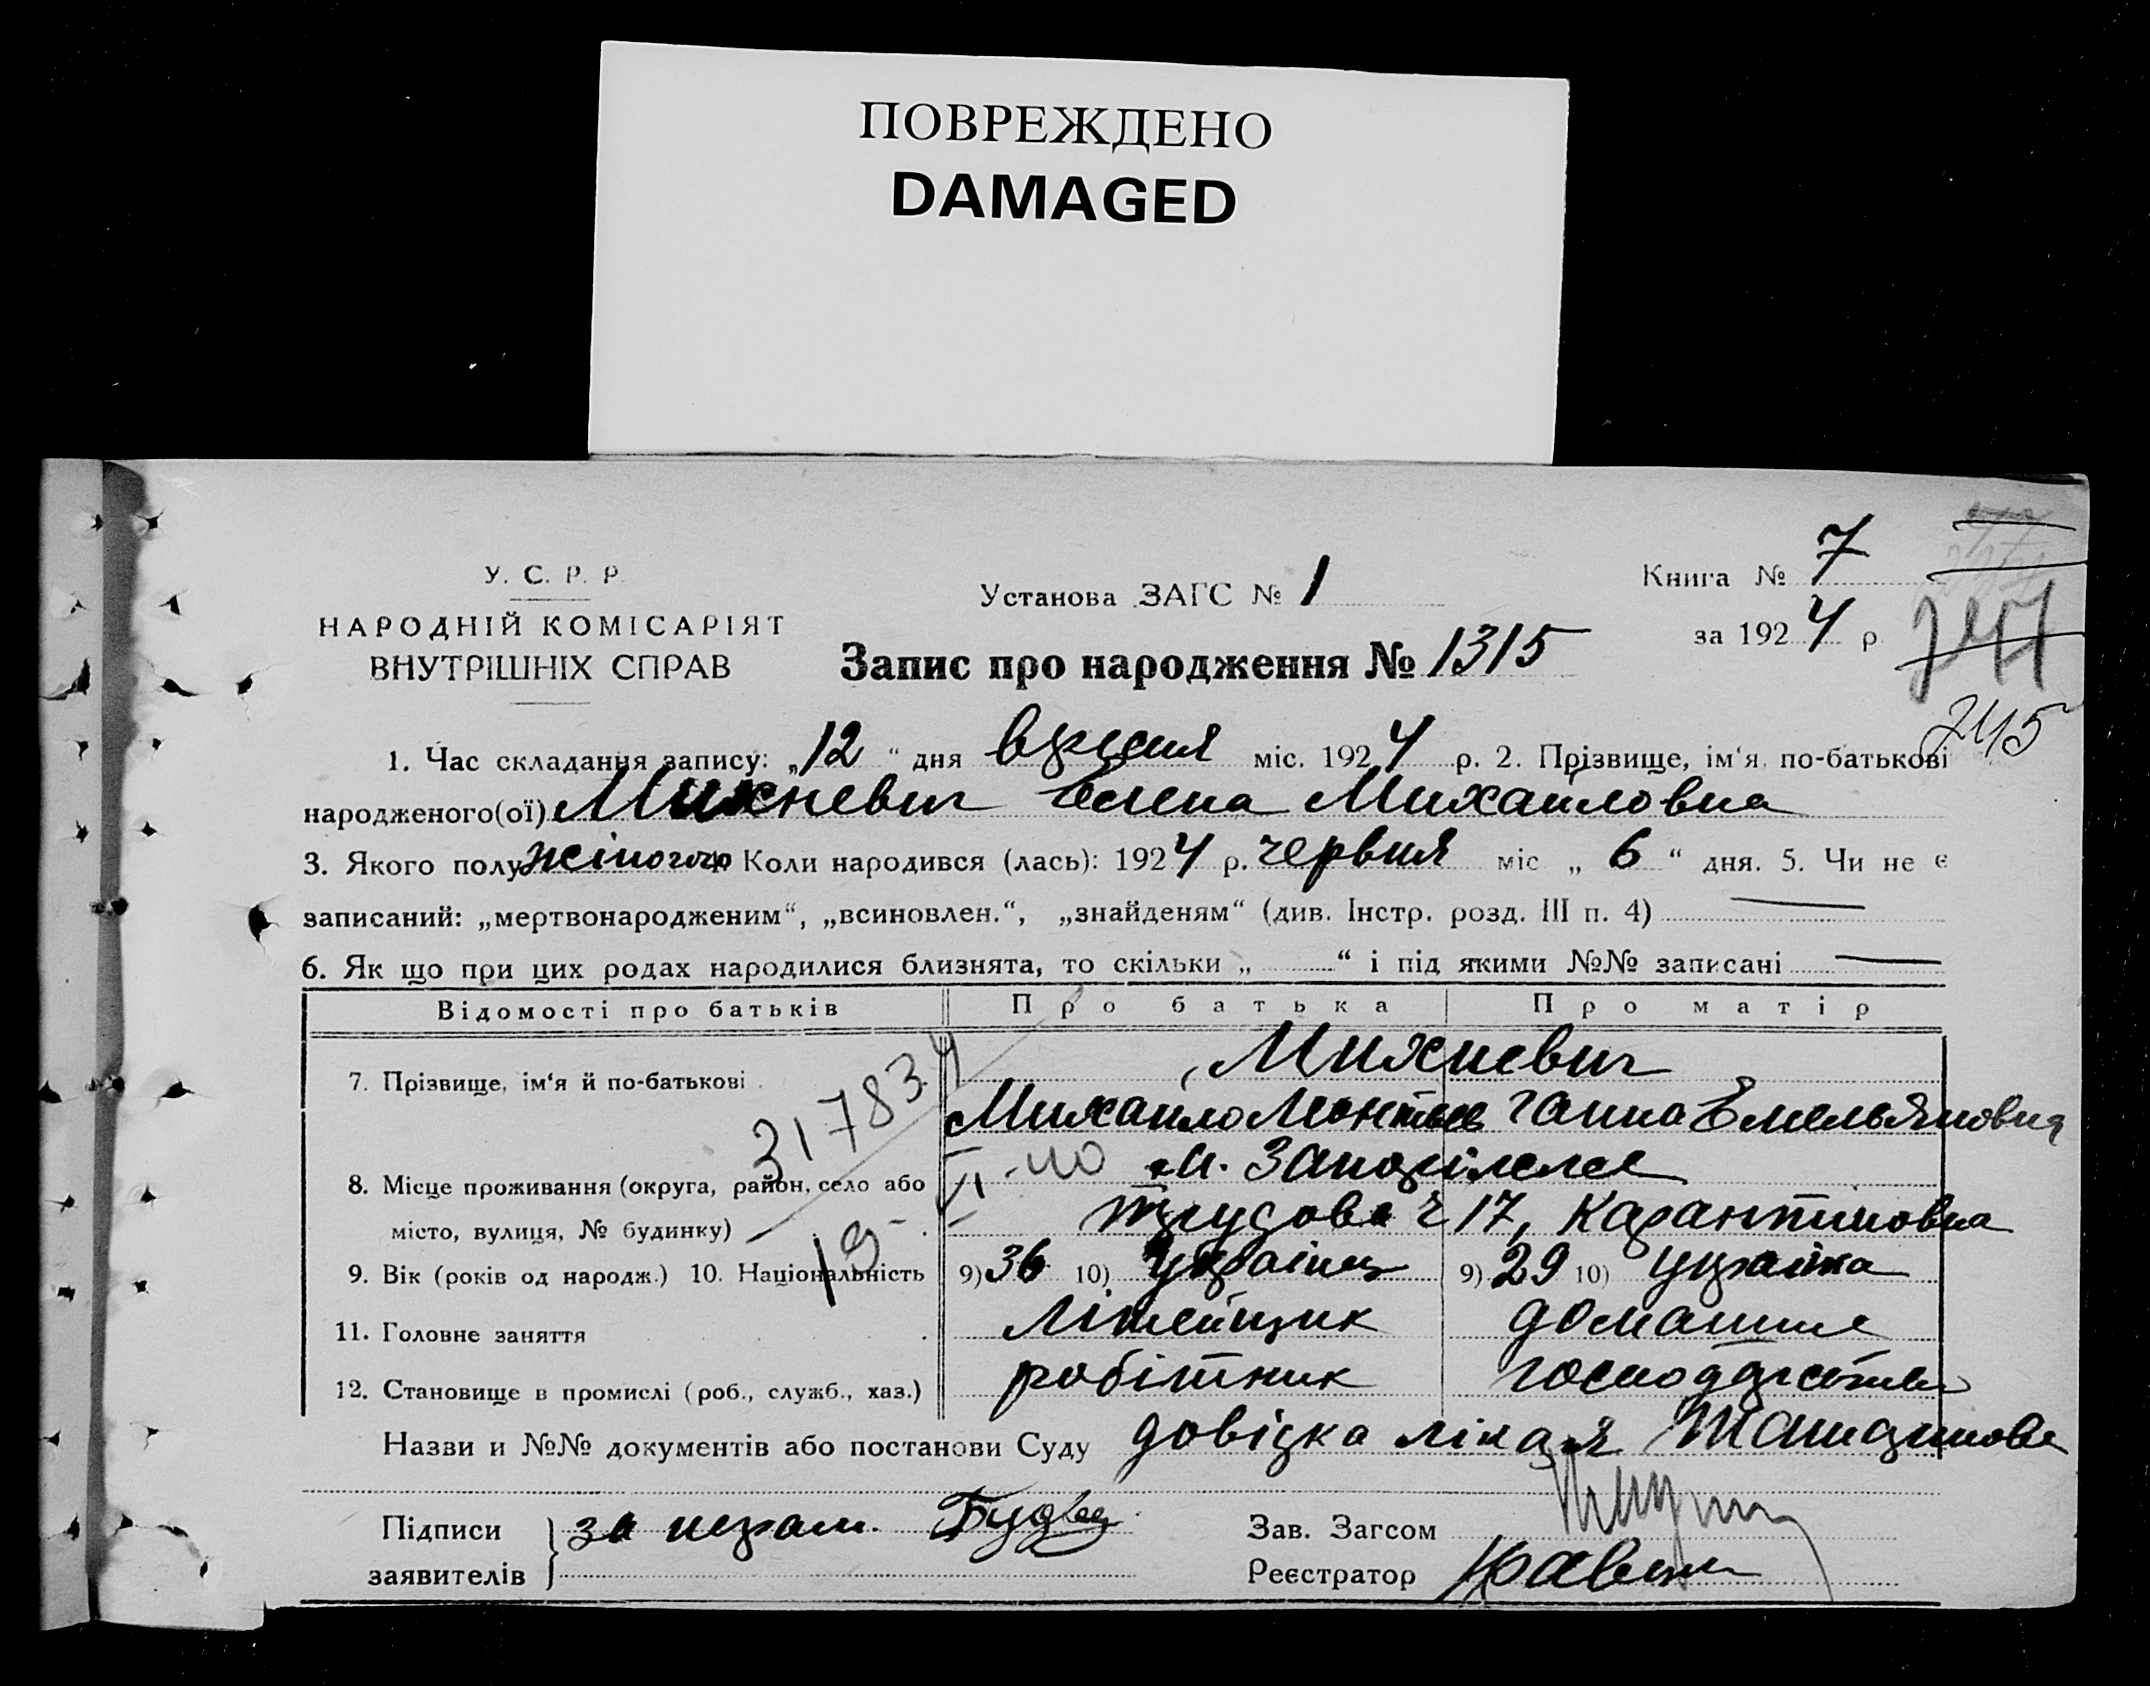 ПОВРЕЖДЕНО
DAMAGED
У. С. Р. Р.
НАРОДНІЙ КОМІСАРІЯТ
ВНУТРІШНІХ СПРАВ
Установа ЗАГС № 1
Книга № 7
за 1924 р
Запис про народження № 1315
2415
1. Час складання запису: „12“ дня вресня міс. 1924 р. 2. Прізвище, ім‘я по-батькові
народженого(ої) Михневич Елена Михайловна
3. Якого полу жіночого 4. Коли народився (лась): 1924 р. червня міс „ 6 “ дня. 5. Чи не є
записаний: „мертвонародженим“, „всиновлен.“, „знайденям“ (див. Інстр. розд. III п. 4) —
6. Як що при цих родах народилися близнята, то скільки „ “ і під якими №№ записані —
Відомості про батьків Про батька Про матір
7. Прізвище, ім‘я й по-батькові Михневич
Михайло Ганна Емельяновна
317834
8. Місце проживання (округа, район, село або м.
місто, вулиця, № будинку) Трудова 17, Карантиновка
19
9. Вік (років од народж.) 10. Національність 9) 36 10) Українець 9) 29 10) Українка
11. Головне заняття Літейщик домашнє
12. Становище в промислі (роб., служб., хаз.) робітник господарство
Назви и №№ документів або постанови Суду довідка лікаря
Підписи за неграм. Зав. Загсом
заявителів Реєстратор